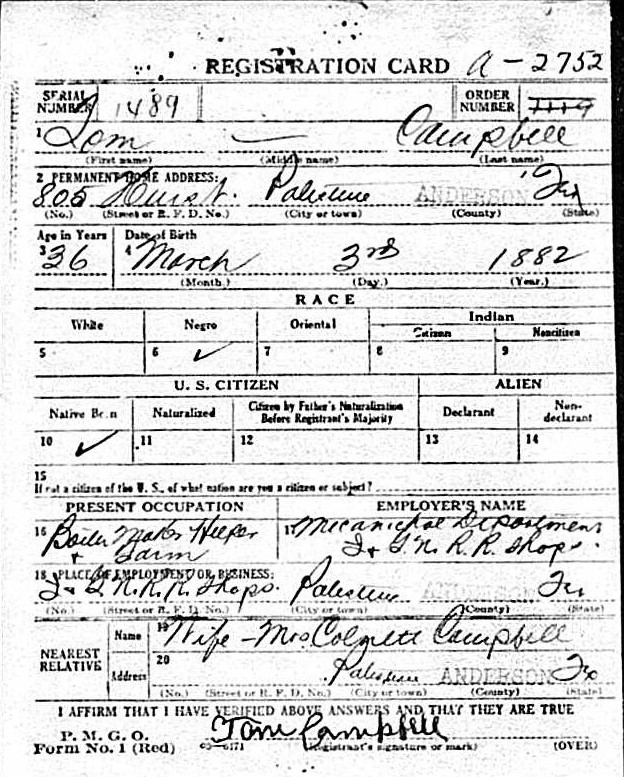 REGISTRATION CARD A-2752
SERIAL NUMBER 1489 ORDER NUMBER
1 Tom — Campbell
(First name) (Middle name) (Last name)
2 PERMANENT HOME ADDRESS:
805 Hurst. Palestine ANDERSON Tex
(No.) (Street or R. F. D. No.) (City or town) (County) (State)
Age in Years Date of Birth
3 36 4 March 3rd 1882
(Month.) (Day.) (Year.)
RACE
White Negro Oriental Indian
Citizen Noncitizen
5 6 ✓ 7 8 9
U. S. CITIZEN ALIEN
Native Born Naturalized Citizen by Father's Naturalization Before Registrant's Majority Declarant Non-declarant
10 ✓ 11 12 13 14
15
If not a citizen of the U. S., of what nation are you a citizen or subject?
PRESENT OCCUPATION EMPLOYER'S NAME
16 Boiler Maker Helper 17 Mecanichal Department
+ Farm I + G. N. R. R. Shops.
18 PLACE OF EMPLOYMENT OR BUSINESS:
I + G. N. R. R. Shops. Palestine ANDERSON Tex
(No.) (Street or R. F. D. No.) (City or town) (County) (State)
NEAREST RELATIVE Name 19 Wife - Mrs Campbell
Address 20 Palestine ANDERSON Tex
(No.) (Street or R. F. D. No.) (City or town) (County) (State)
I AFFIRM THAT I HAVE VERIFIED ABOVE ANSWERS AND THAT THEY ARE TRUE
P. M. G. O.
Form No. 1 (Red) 03-6171 Tom Campbell
(Registrant's signature or mark) (OVER)